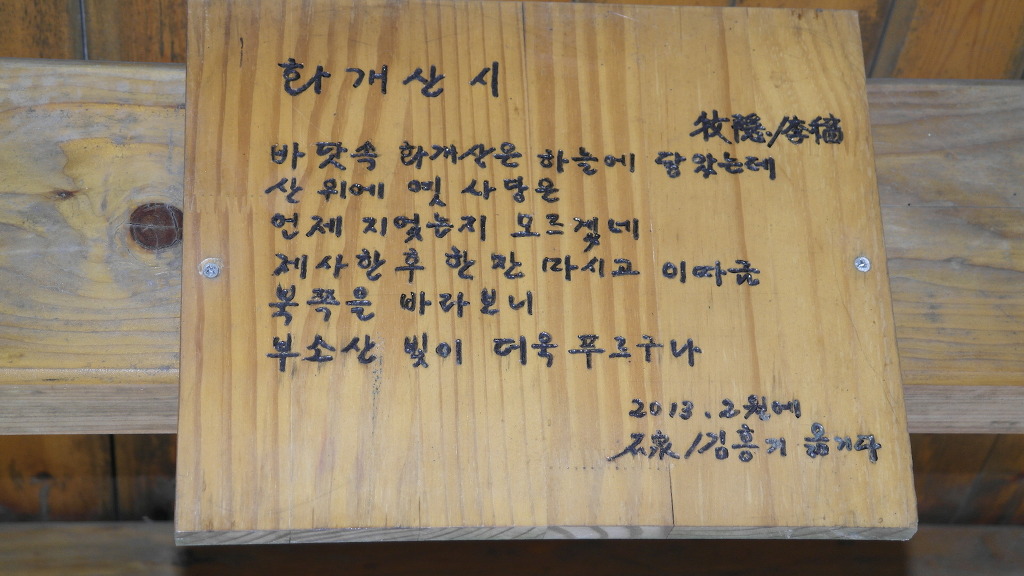 화개산 시
牧隱/李穡
바닷속 화개산은 하늘에 닿았는데
산 위에 옛 사당은
언제 지었는지 모르겠네
제사한 후 한 잔 마시고 이따금
북쪽을 바라보니
부소산 빛이 더욱 푸르구나
2013. 2월에
/김흥기 옮기다